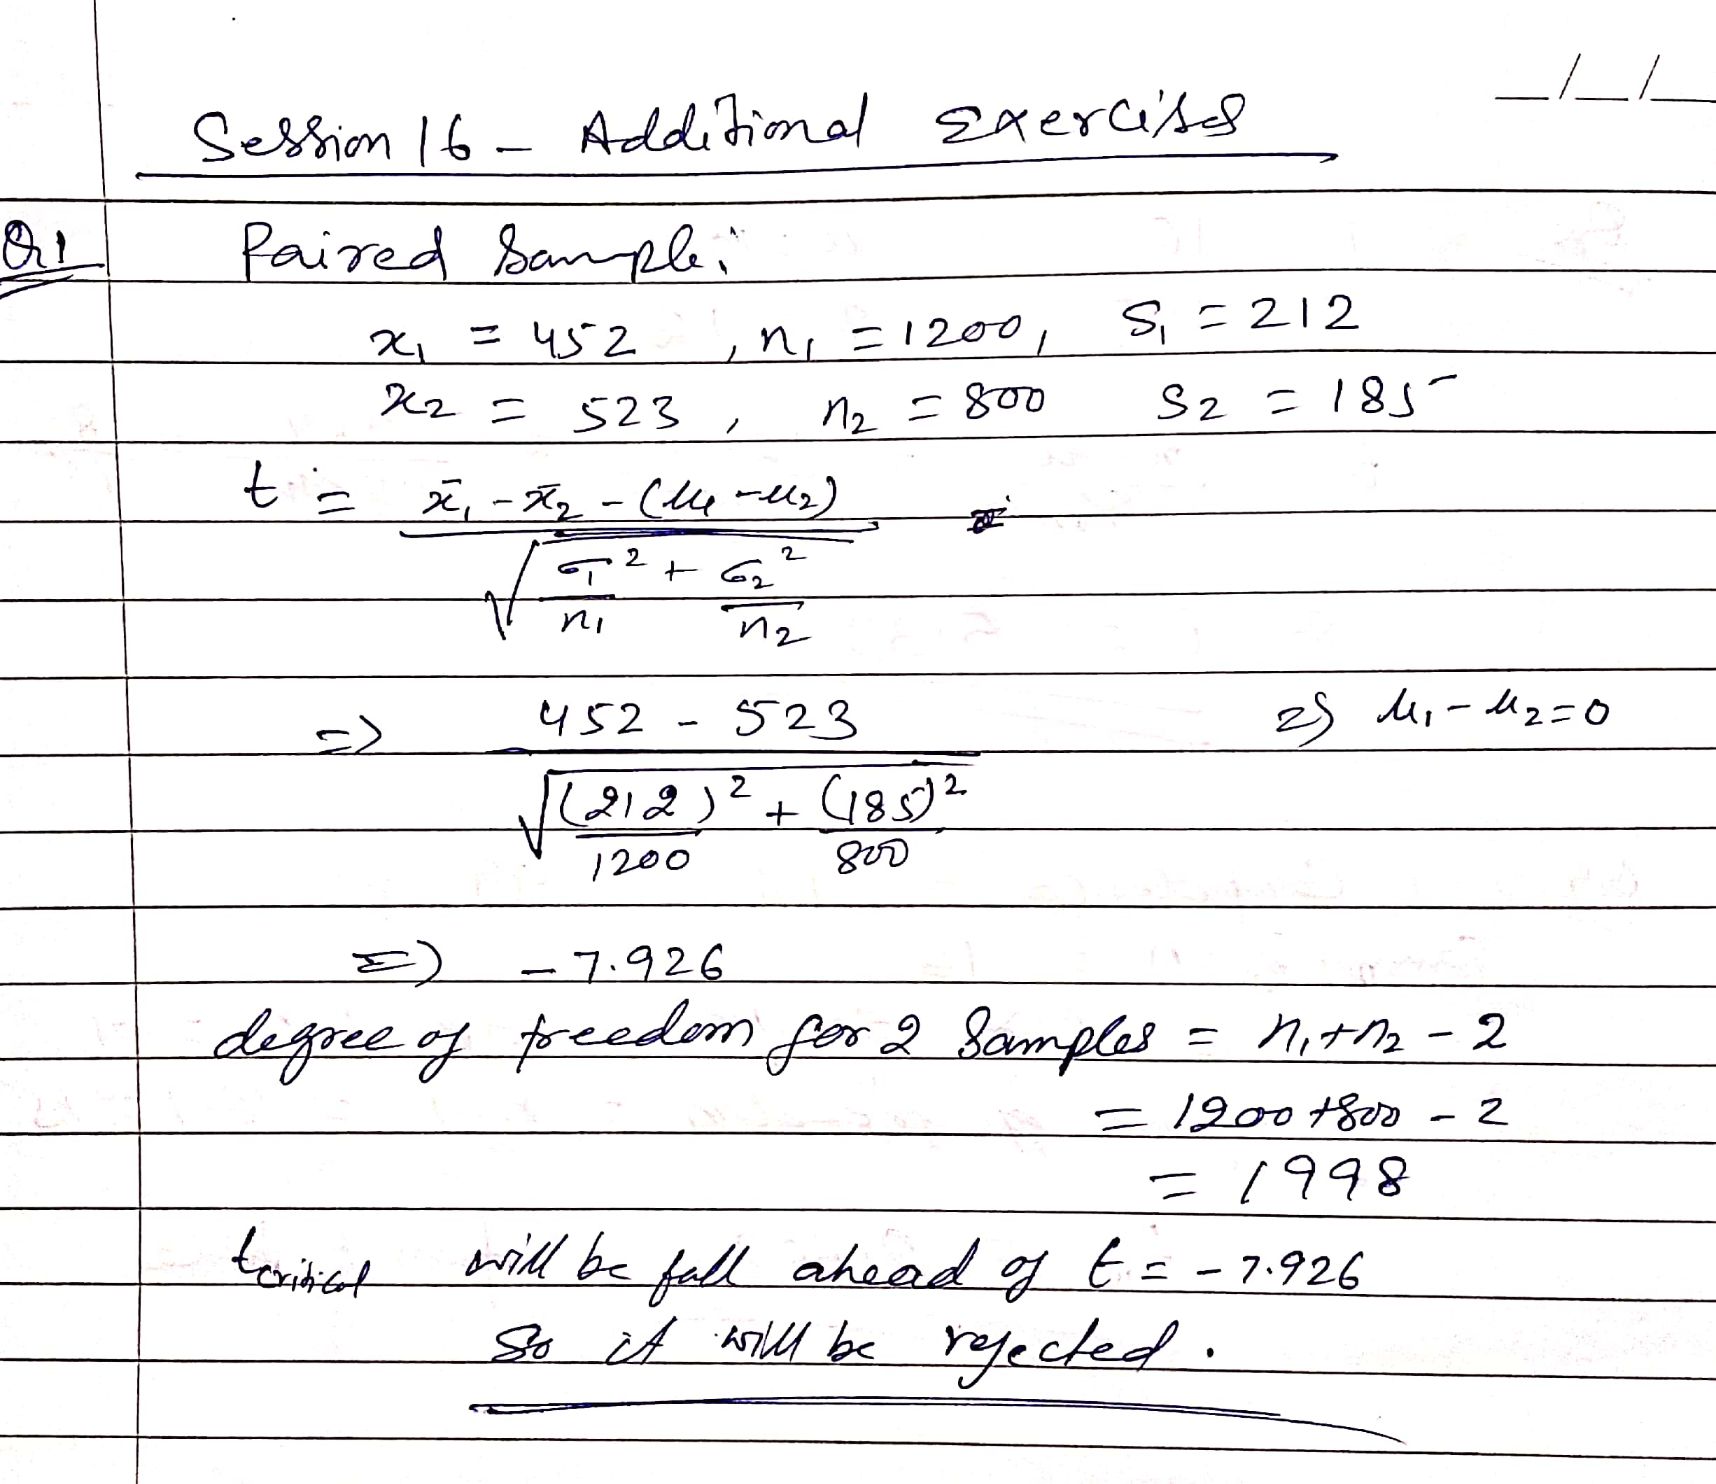 _/_/_
Session 16 - Additional Exercises
Q1 Paired Sample:
x₁ = 452 , n₁ = 1200, S₁ = 212
x₂ = 523 , n₂ = 800 S₂ = 185
t = x̄₁ - x̄₂ - (μ₁ - μ₂)
√ σ₁² / n₁ + σ₂² / n₂
=> 452 - 523 μ₁ - μ₂ = 0
√ (212)² / 1200 + (185)² / 800
=> - 7.926
degree of freedom for 2 Samples = n₁ + n₂ - 2
= 1200 + 800 - 2
= 1998
tcritical will be fall ahead of t = - 7.926
So it will be rejected.